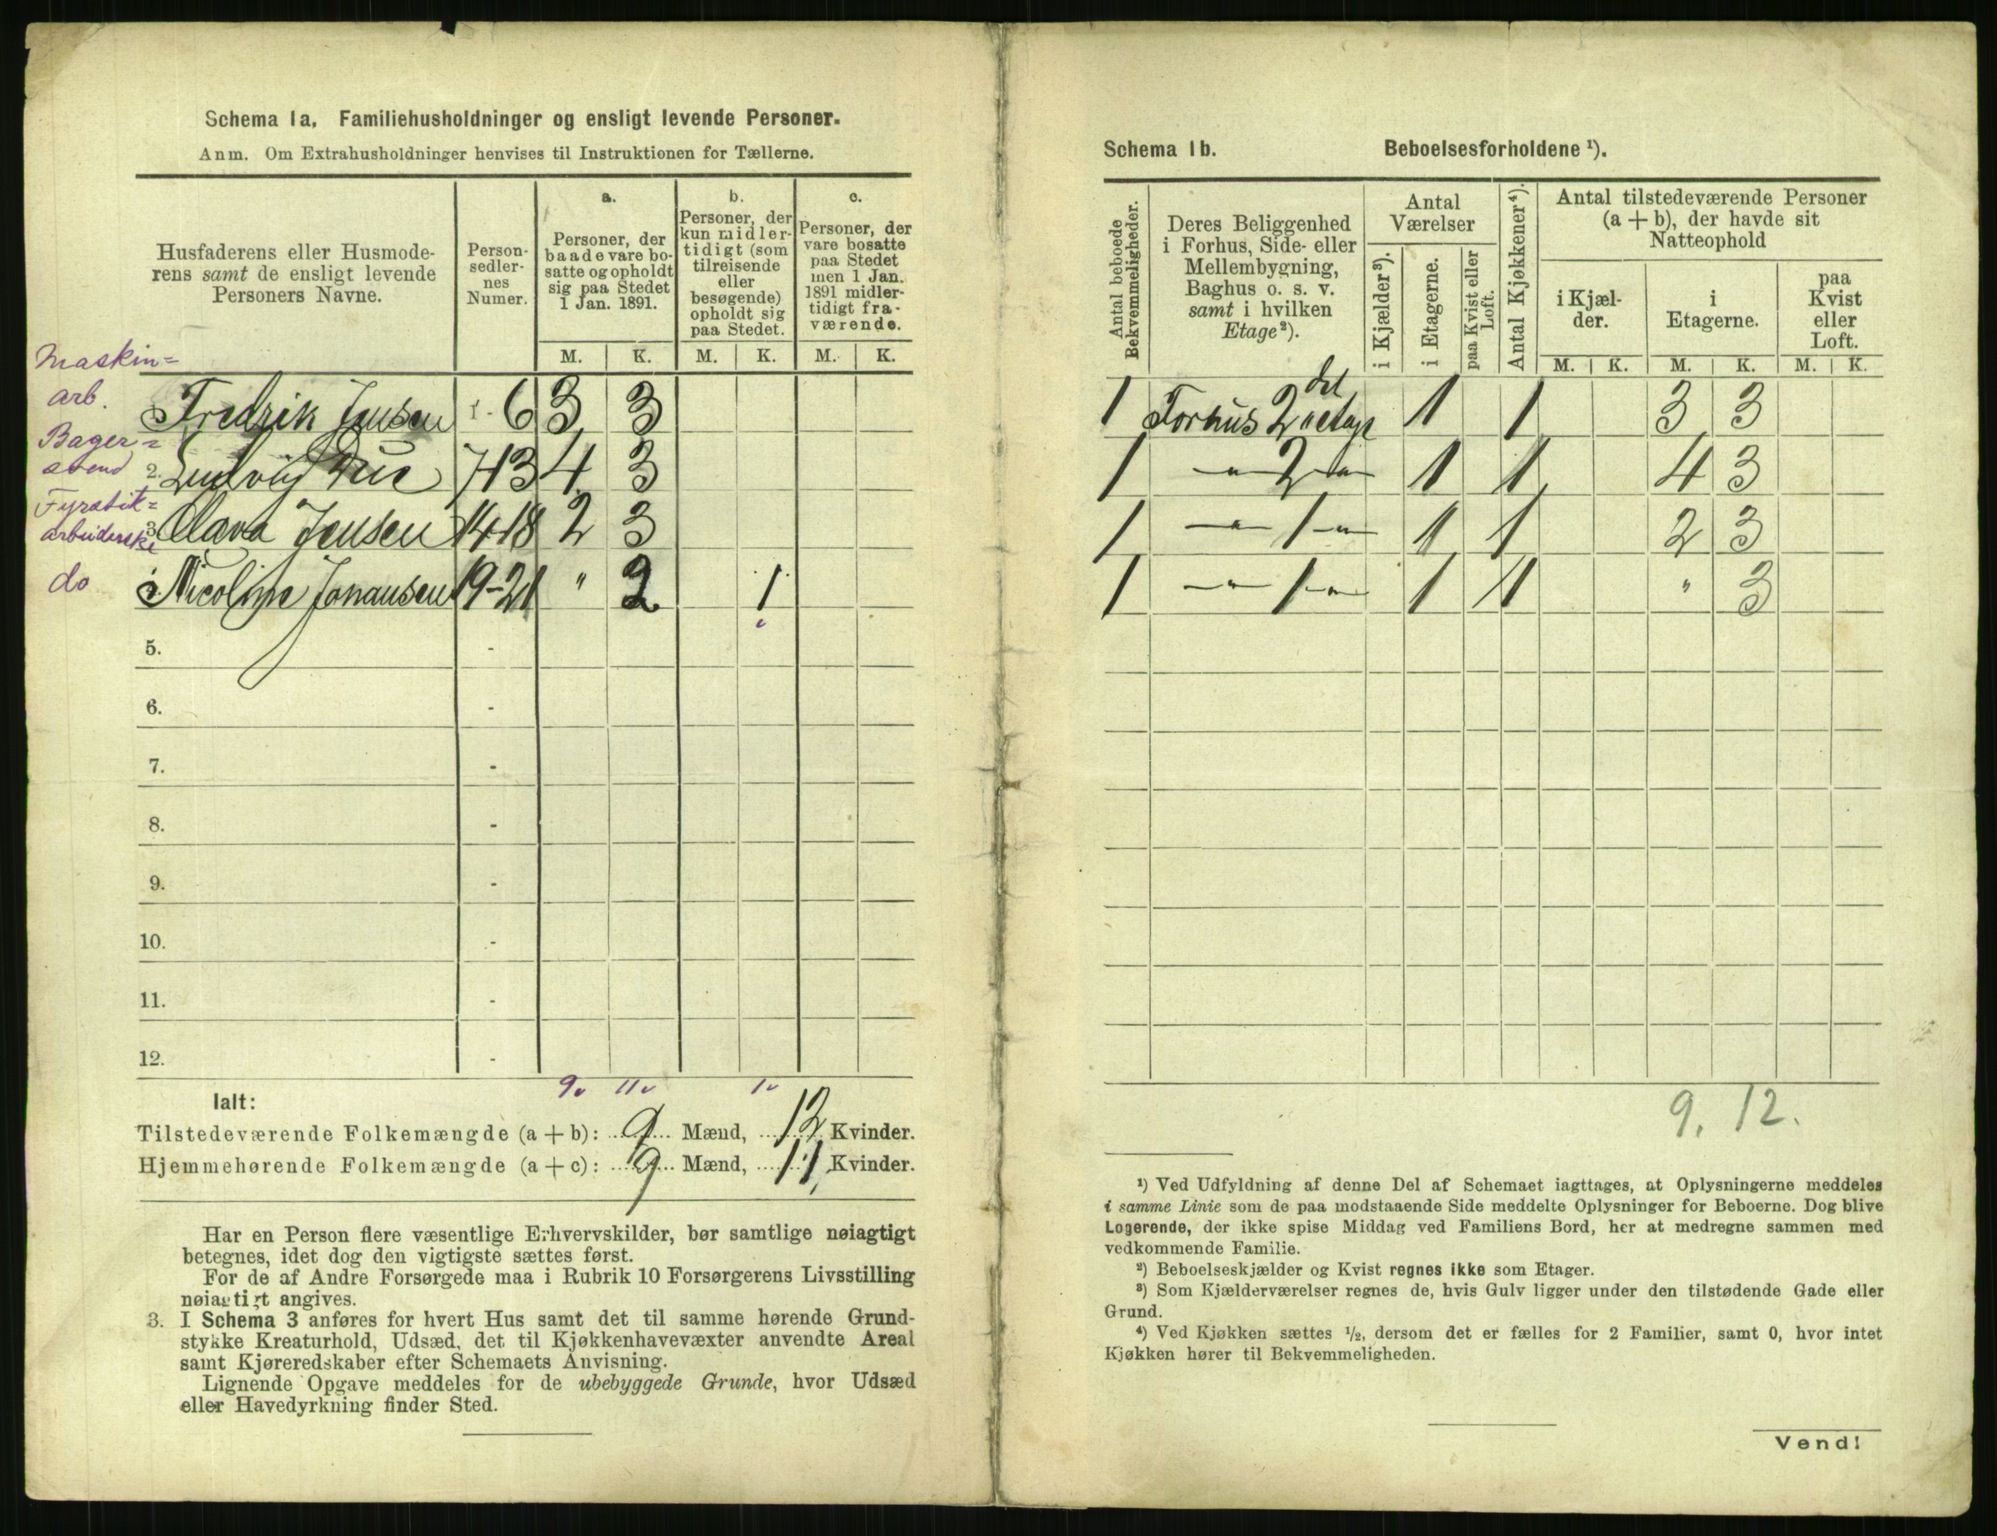 Schema 1a. Familiehusholdninger og ensligt levende Personer.
Anm. Om Extrahusholdninger henvises til Instruktionen for Tællerne.
Husfaderens eller Husmoderens samt de ensligt levende Personers Navne.
Personsedlernes Numer.
a.
Personer, der baade vare bosatte og opholdt sig paa Stedet 1 Jan. 1891.
b.
Personer, der kun midlertidigt (som tilreisende eller besøgende) opholdt sig paa Stedet.
c.
Personer, der vare bosatte paa Stedet men 1 Jan. 1891 midlertidigt fraværende.
M. K. M. K. M. K.
Maskin=
arb.
Fredrik Jensen 1-6 3 3
Bager=
svend
2. Ludvig Due 7-13 4 3
Fyrstik=
arbeiderske
3 Clara Jensen 14-18 2 3
do
Nicoline Johansen 19-21 " 2 1
5. -
6. -
7. -
8. -
9. -
10. -
11. -
12. -
9v 11v 1v
Ialt:
Tilstedeværende Folkemængde (a + b): 9 Mænd, 12 Kvinder.
Hjemmehørende Folkemængde (a + c): 9 Mænd, 11 Kvinder.
Har en Person flere væsentlige Erhvervskilder, bør samtlige nøiagtigt
betegnes, idet dog den vigtigste sættes først.
For de af Andre Forsørgede maa i Rubrik 10 Forsørgerens Livsstilling
nøiagtigt angives.
3. I Schema 3 anføres for hvert Hus samt det til samme hørende Grund-
stykke Kreaturhold, Udsæd, det til Kjøkkenhavevæxter anvendte Areal
samt Kjøreredskaber efter Schemaets Anvisning.
Lignende Opgave meddeles for de ubebyggede Grunde, hvor Udsæd
eller Havedyrkning finder Sted.
Schema 1b. Beboelsesforholdene ¹).
Antal beboede Bekvemmeligheder.
Deres Beliggenhed i Forhus, Side- eller Mellembygning, Baghus o. s. v. samt i hvilken Etage²).
Antal Værelser
i Kjælder³).
i Etagerne.
paa Kvist eller Loft.
Antal Kjøkkener⁴).
Antal tilstedeværende Personer (a + b), der havde sit Natteophold
i Kjælder.
i Etagerne.
paa Kvist eller Loft.
M. K. M. K. M. K.
1 Forhus 2det etage 1 1 3 3
1 -"- 2-"- 1 1 4 3
1 -"- 1-"- 1 1 2 3
1 -"- 1-"- 1 1 " 3
9. 12.
¹) Ved Udfyldning af denne Del af Schemaet iagttages, at Oplysningerne meddeles
i samme Linie som de paa modstaaende Side meddelte Oplysninger for Beboerne. Dog blive
Logerende, der ikke spise Middag ved Familiens Bord, her at medregne sammen med
vedkommende Familie.
²) Beboelseskjælder og Kvist regnes ikke som Etager.
³) Som Kjælderværelser regnes de, hvis Gulv ligger under den tilstødende Gade eller
Grund.
⁴) Ved Kjøkken sættes ½, dersom det er fælles for 2 Familier, samt 0, hvor intet
Kjøkken hører til Bekvemmeligheden.
Vend!